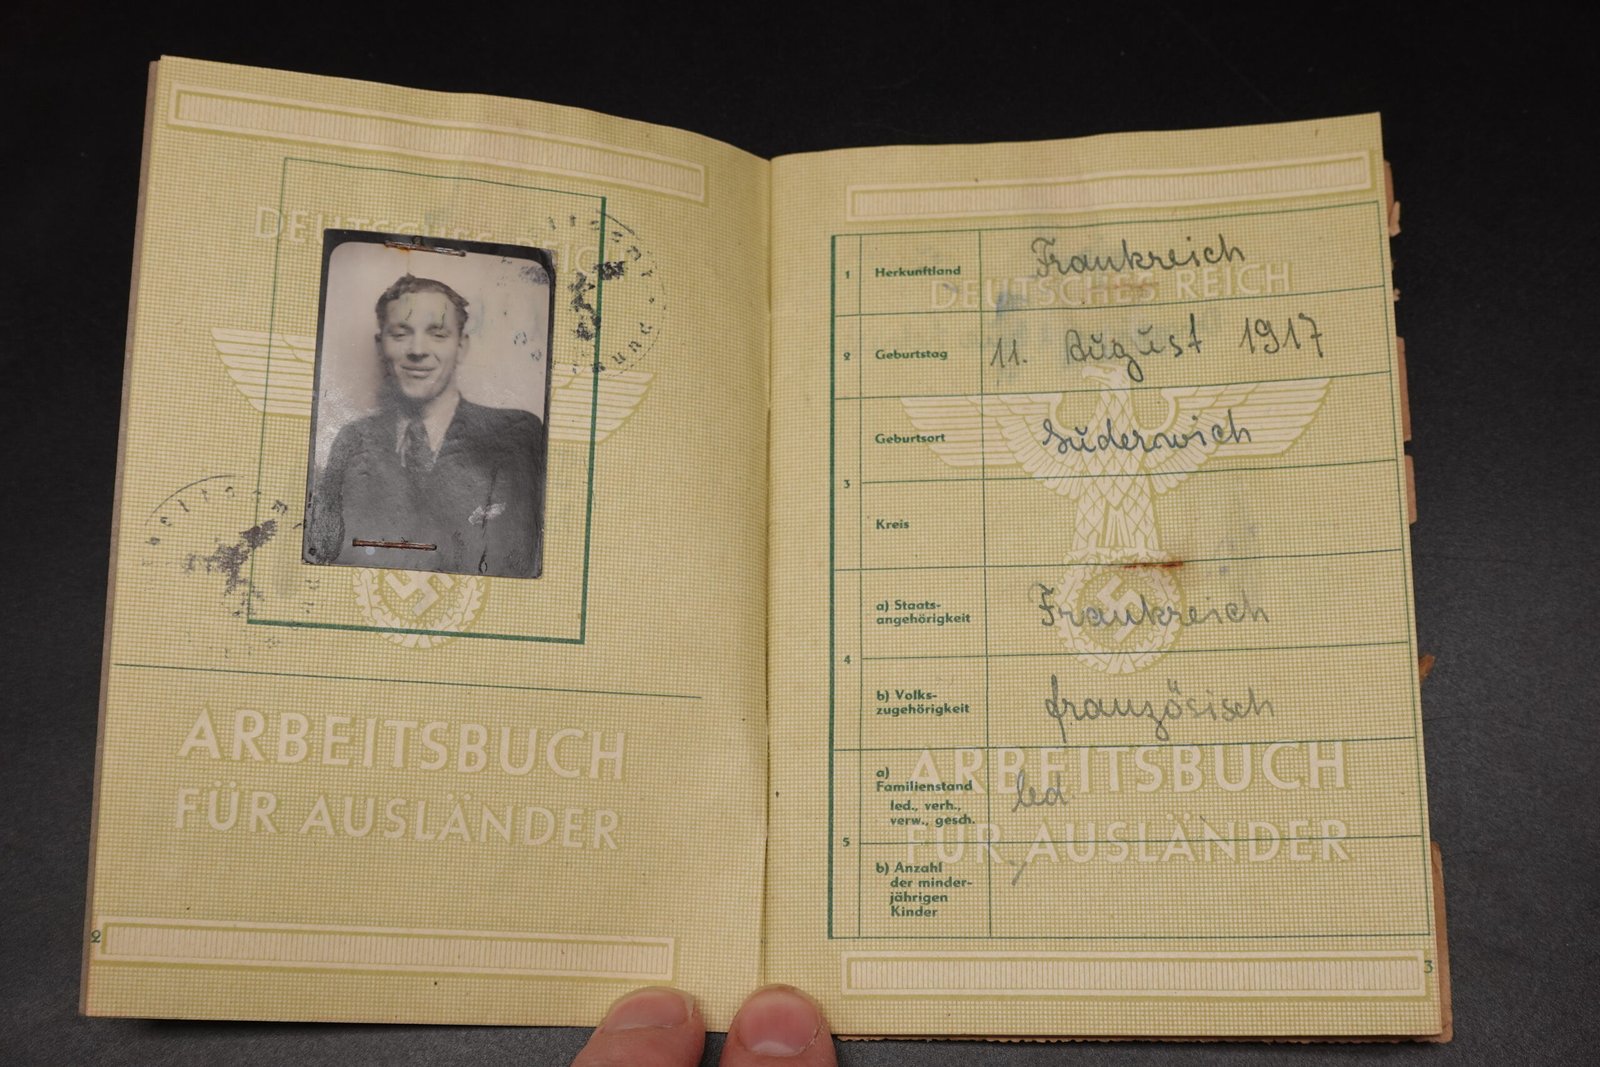 DEUTSCHES REICH
ARBEITSBUCH
FÜR AUSLÄNDER
2
DEUTSCHES REICH
1 Herkunftland Frankreich
2 Geburtstag 11. August 1917
3 Geburtsort Suderwich
Kreis
4 a) Staats-
angehörigkeit Frankreich
b) Volks-
zugehörigkeit französisch
5 a)
Familienstand led
led., verh.,
verw., gesch.
b) Anzahl
der minder-
jährigen
Kinder
ARBEITSBUCH
FÜR AUSLÄNDER
3